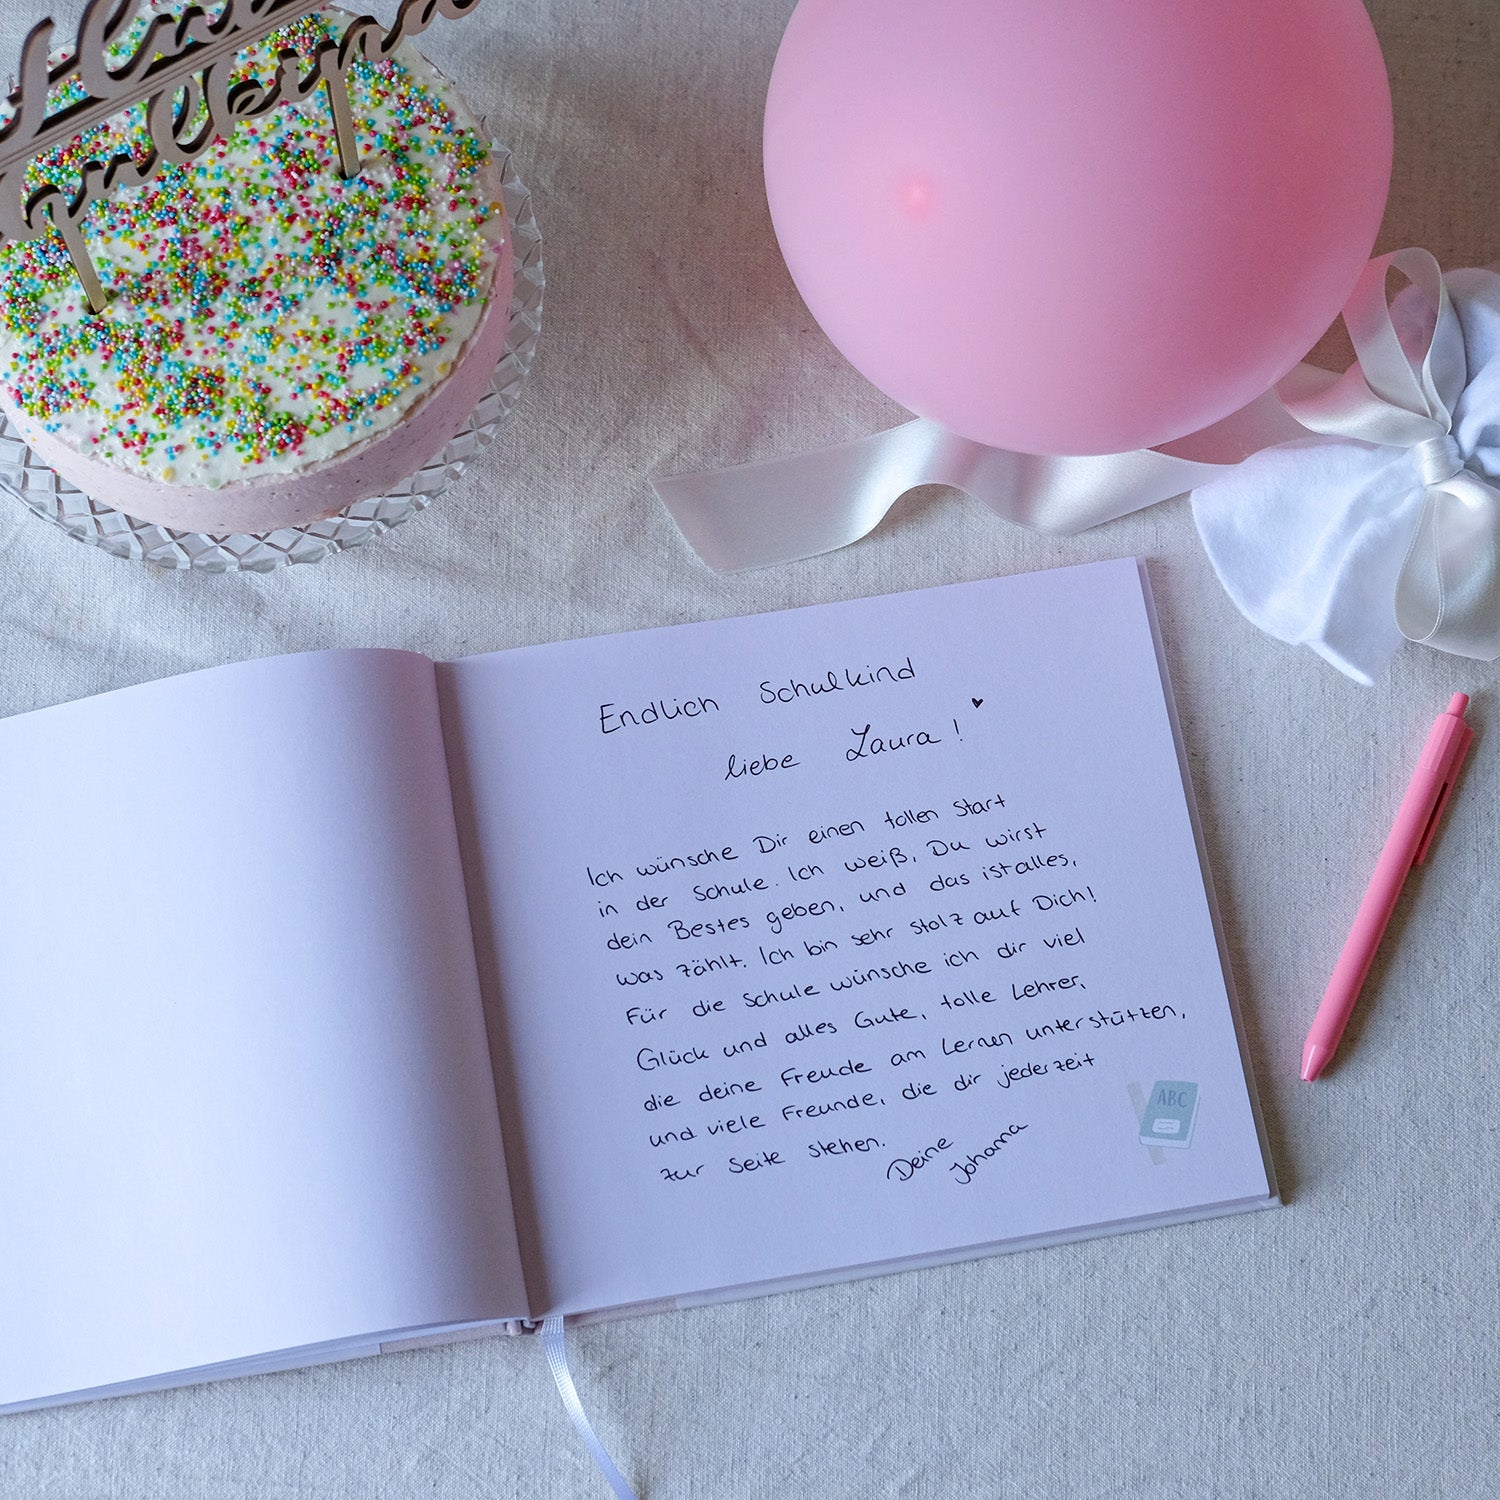 Endlich Schulkind
liebe Laura!
Ich wünsche Dir einen tollen Start
in der Schule. Ich weiß, Du wirst
dein Bestes geben, und das ist alles,
was zählt. Ich bin sehr stolz auf Dich!
Für die Schule wünsche ich dir viel
Glück und alles Gute, tolle Lehrer,
die deine Freude am Lernen unterstützen,
und viele Freunde, die dir jederzeit
zur Seite stehen.
Deine
Johanna
ABC